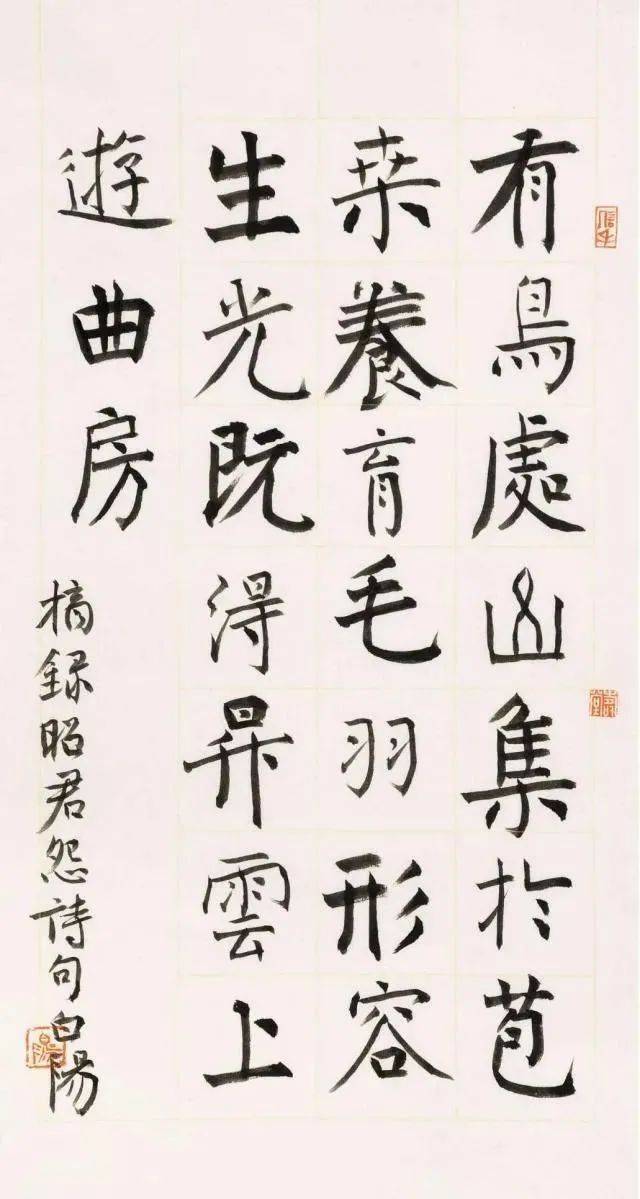 有鳥處山集於苞
桒養育毛羽形容
生光既得昇雲上
遊曲房
摘録昭君怨詩句白陽